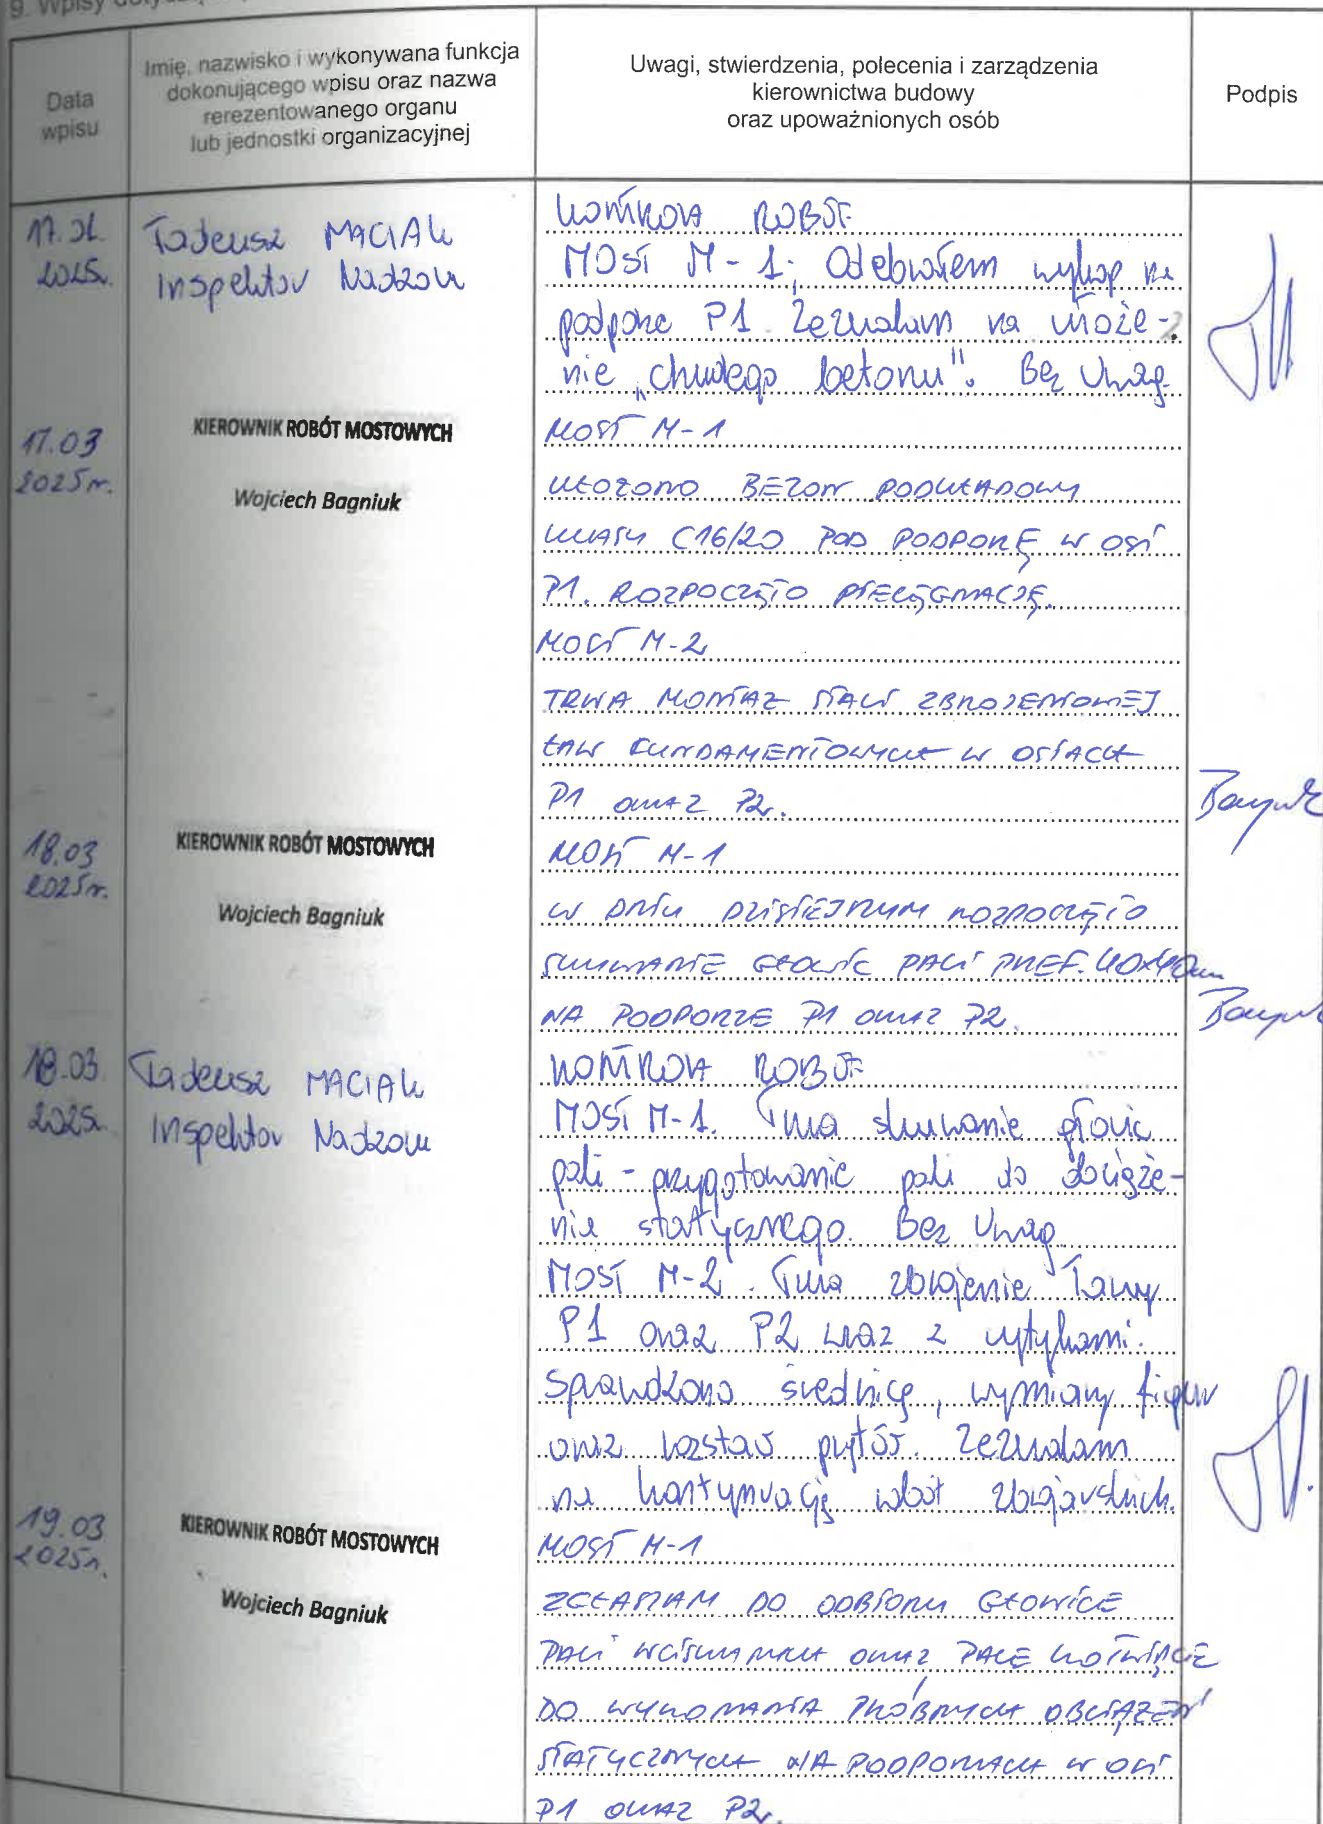 9. Wpisy
Data
wpisu
Imię, nazwisko i wykonywana funkcja
dokonującego wpisu oraz nazwa
rerezentowanego organu
lub jednostki organizacyjnej
Uwagi, stwierdzenia, polecenia i zarządzenia
kierownictwa budowy
oraz upoważnionych osób
Podpis
17.
2025r.
Tadeusz MACIAK
Inspektor Nadzoru
KONTROLA ROBÓT
MOST M-1; Odebrałem wykop na
podporze P1. Zezwalam na ułoże-
nie "chudego betonu". Bez Uwag.
17.03
2025r.
KIEROWNIK ROBÓT MOSTOWYCH
Wojciech Bagniuk
MOST M-1
UŁOŻONO BETON PODKŁADOWY
KLASY C16/20 POD PODPORĘ W OSI
P1. ROZPOCZĘTO PIELĘGNACJĘ.
MOST M-2
TRWA MONTAŻ STALI ZBROJENIOWEJ
ŁAW FUNDAMENTOWYCH W OSIACH
P1 ORAZ P2.
18.03
2025r.
KIEROWNIK ROBÓT MOSTOWYCH
Wojciech Bagniuk
MOST M-1
W DNIU DZISIEJSZYM ROZPOCZĘTO
SKUWANIE GŁOWIC PALI PREF. 40x40cm
NA PODPORZE P1 ORAZ P2.
18.03.
2025r.
Tadeusz MACIAK
Inspektor Nadzoru
KONTROLA ROBÓT
MOST M-1. Trwa skuwanie głowic
pali - przygotowanie pali do dociąże-
nia statycznego. Bez Uwag.
MOST M-2. Trwa zbrojenie Ławy
P1 oraz P2 wraz z wytykami.
Sprawdzono średnicę, wymiany figur
oraz rozstaw prętów. Zezwalam
na kontynuację robót zbrojarskich.
19.03
2025r.
KIEROWNIK ROBÓT MOSTOWYCH
Wojciech Bagniuk
MOST M-1
ZGŁASZAM DO ODBIORU GŁOWICE
PALI WCISKANYCH ORAZ PALE KOTWIĄCE
DO WYKONANIA PRÓBNYCH OBCIĄŻEŃ
STATYCZNYCH NA PODPORACH W OSI
P1 ORAZ P2.